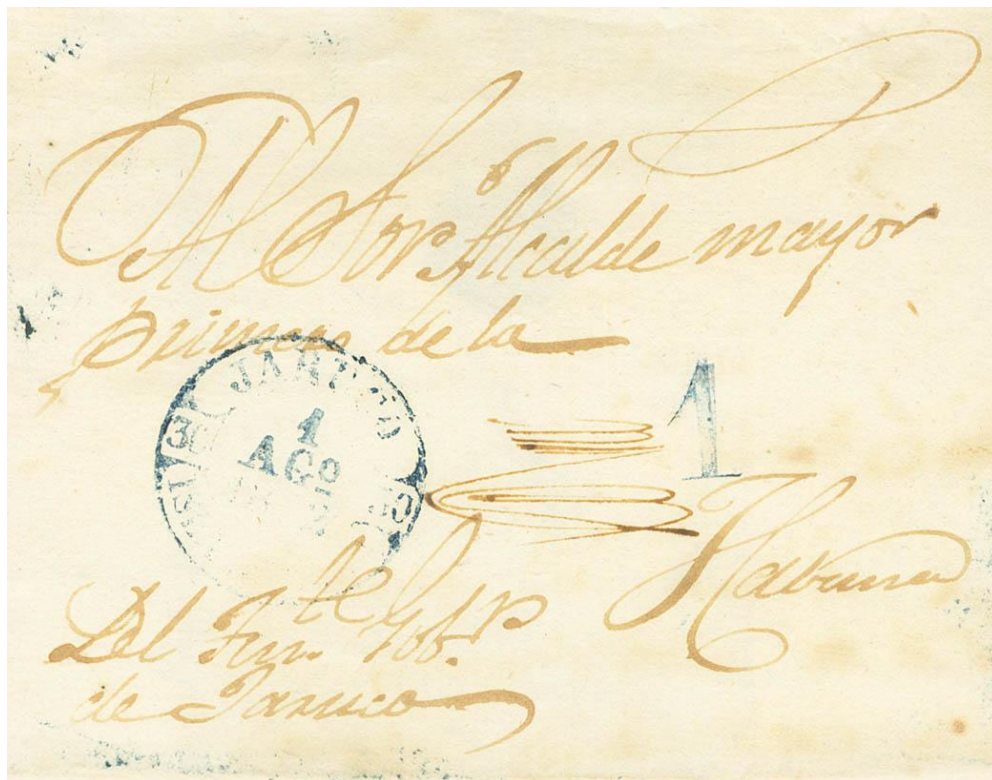 Al Sor. Alcalde mayor
primero de la
JARUCO
1
AGO
1
Habana
Del Ten.te Gob.or
de Jaruco